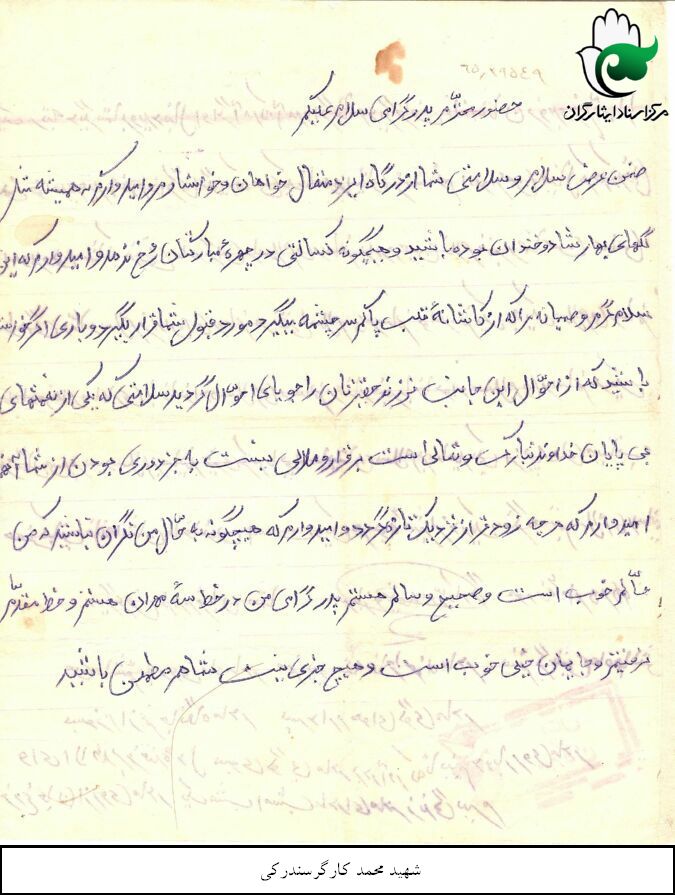 مرکز اسناد ایثارگران
۶۵٫۲۹۵۴۹
حضور محترم پدر گرامی سلام علیکم
ضمن عرض سلام و سلامتی شما از درگاه ایزد متعال خواهان و خواستارم و امیدوارم که همیشه مثل
گلهای بهار شاد و خندان بوده باشید و هیچگونه کسالتی در چهرهٔ مبارکتان رخ ندهد و امیدوارم که این
سلام گرم و صمیانه را که از کاشانهٔ قلب پاکم سرچشمه میگیرد مورد قبول شما قرار بگیرد و باری اگر خواسته
باشید که از احوال این جانب فرزند حقیرتان را جویای احوال گردید سلامتی که یکی از نعمتهای
بی پایان خداوند تبارک و تعالی است برقرار و ملالی نیست به جز دوری بودن از شما آنهم
امیدوارم که هر چه زودتر از نزدیک تازه گردد و امیدوارم که هیچگونه به حال من نگران نباشید که من
حالم خوب است و صحیح و سالم هستم پدر گرامی من در خط سه مهران هستم و خط مقدم
نرفتیم و جایمان خیلی خوب است و هیچ خبری نیست شما هم مطمئن باشید
شهید محمد کارگرسندرکی